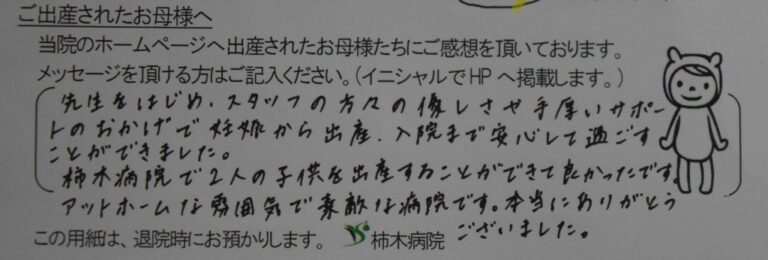 ご出産されたお母様へ
当院のホームページへ出産されたお母様たちにご感想を頂いております。
メッセージを頂ける方はご記入ください。(イニシャルでHPへ掲載します。)
先生をはじめ、スタッフの方々の優しさや手厚いサポー
トのおかげで妊娠から出産、入院まで安心して過ごす
ことができました。
柿木病院で2人の子供を出産することができて良かったです。
アットホームな雰囲気で素敵な病院です。本当にありがとう
ございました。
この用紙は、退院時にお預かりします。 柿木病院